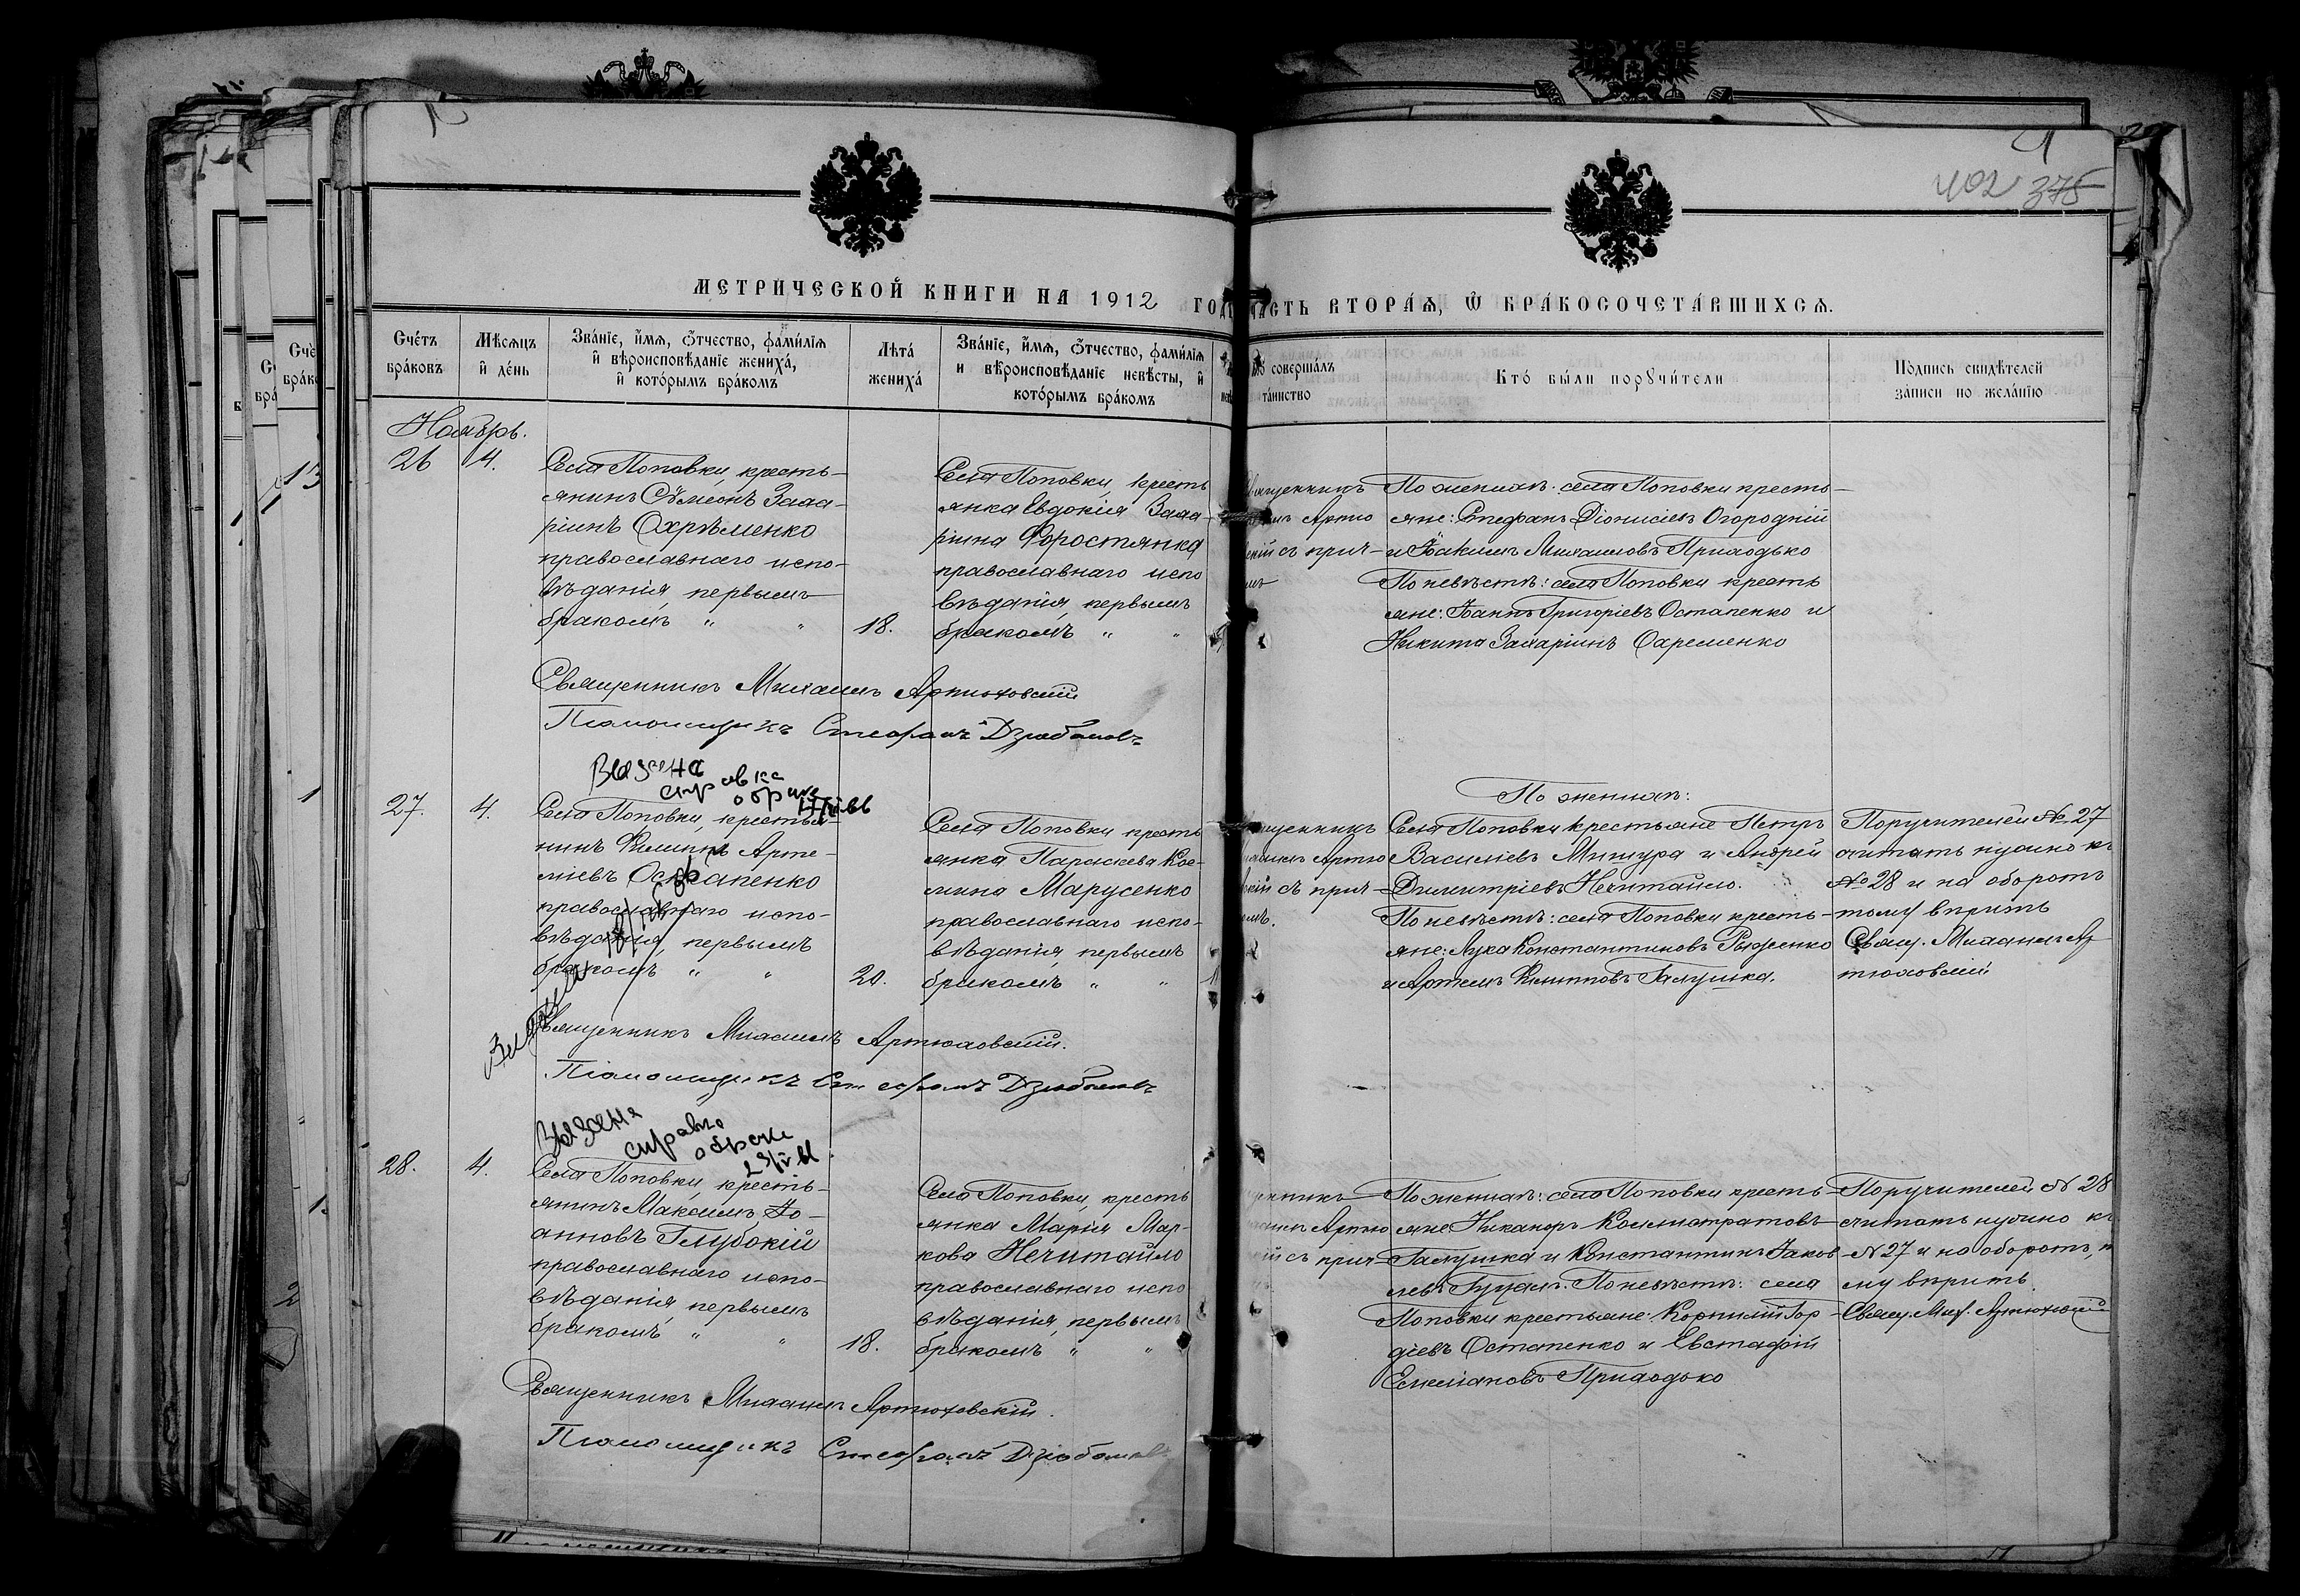 402 375
МЕТРИЧЕСКОЙ КНИГИ НА 1912 ГОДЪ ЧАСТЬ ВТОРАЯ, Ѡ БРАКОСОЧЕТАВШИХСЯ.
Счетъ браковъ
Мѣсяцъ и день
Званіе, имя, отчество, фамилія и вѣроисповѣданіе жениха, и которымъ бракомъ
Лѣта жениха
Званіе, имя, отчество, фамилія и вѣроисповѣданіе невѣсты, и которымъ бракомъ
совершалъ таинство
Кто были поручители
Подпись свидѣтелей записи по желанію
Ноябрь.
26 4.
Села Поповки, кресть-
янинъ Сѵмеонъ Заха-
ріинъ Охрѣменко
православнаго испо-
вѣданія, первымъ
бракомъ " "
18.
Села Поповки, кресть
янка Евдокія Заха-
ріина Форостянка
православнаго испо
вѣданія, первымъ
бракомъ " "
По женихѣ: села Поповки кресть-
яне: Стефанъ Діонисіевъ Огородній
и Іоакимъ Михаиловъ Приходько
По невѣстѣ: села Поповки кресть
яне: Іоаннъ Григоріевъ Остапенко и
Никита Захаріинъ Охременко
Священникъ Михаилъ Артюховскій
Псаломщикъ Стефанъ Дзюбановъ
справка
27. 4.
Села Поповки, крестья-
нинъ Филиппъ Арте-
міевъ Остапенко
православнаго испо-
вѣданія, первымъ
бракомъ " "
20.
Села Поповки кресть
янка Параскева Кос-
мина Марусенко
православнаго испо-
вѣданія первымъ
бракомъ " "
По женихѣ:
Села Поповки крестьяне Петръ
Василіевъ Мишура и Андрей
Димитріевъ Нечитайло.
По невѣстѣ: села Поповки кресть-
яне: Лука Константиновъ Рыженко
и Артемъ Филипповъ Галушка.
Поручителей № 27
считать нужно къ
№ 28 и на оборотъ
тому вѣрить
Свящ. Михаилъ Ар
тюховскій
Священникъ Михаилъ Артюховскій.
Псаломщикъ Стефанъ Дзюбановъ
справка
о браке
28. 4.
Села Поповки, кресть-
янинъ Максимъ Іо-
анновъ Глубокій
православнаго испо-
вѣданія, первымъ
бракомъ " "
18.
Села Поповки, кресть
янка Марія Мар-
кова Нечитайло
православнаго испо
вѣданія, первымъ
бракомъ " "
По женихѣ: села Поповки кресть-
яне Никаноръ Каллистратовъ
Галушка и Константинъ Іаков-
левъ По невѣстѣ: села
Поповки крестьяне: Корнилій Гор-
діевъ Остапенко и Евстафій
Емеліановъ Приходько
Поручителей № 28
считать нужно къ
№ 27 и на оборотъ,
му вѣрить
Свящ. Мих. Артюховскій
Священникъ Михаилъ Артюховскій.
Псаломщикъ Стефанъ Дзюбановъ